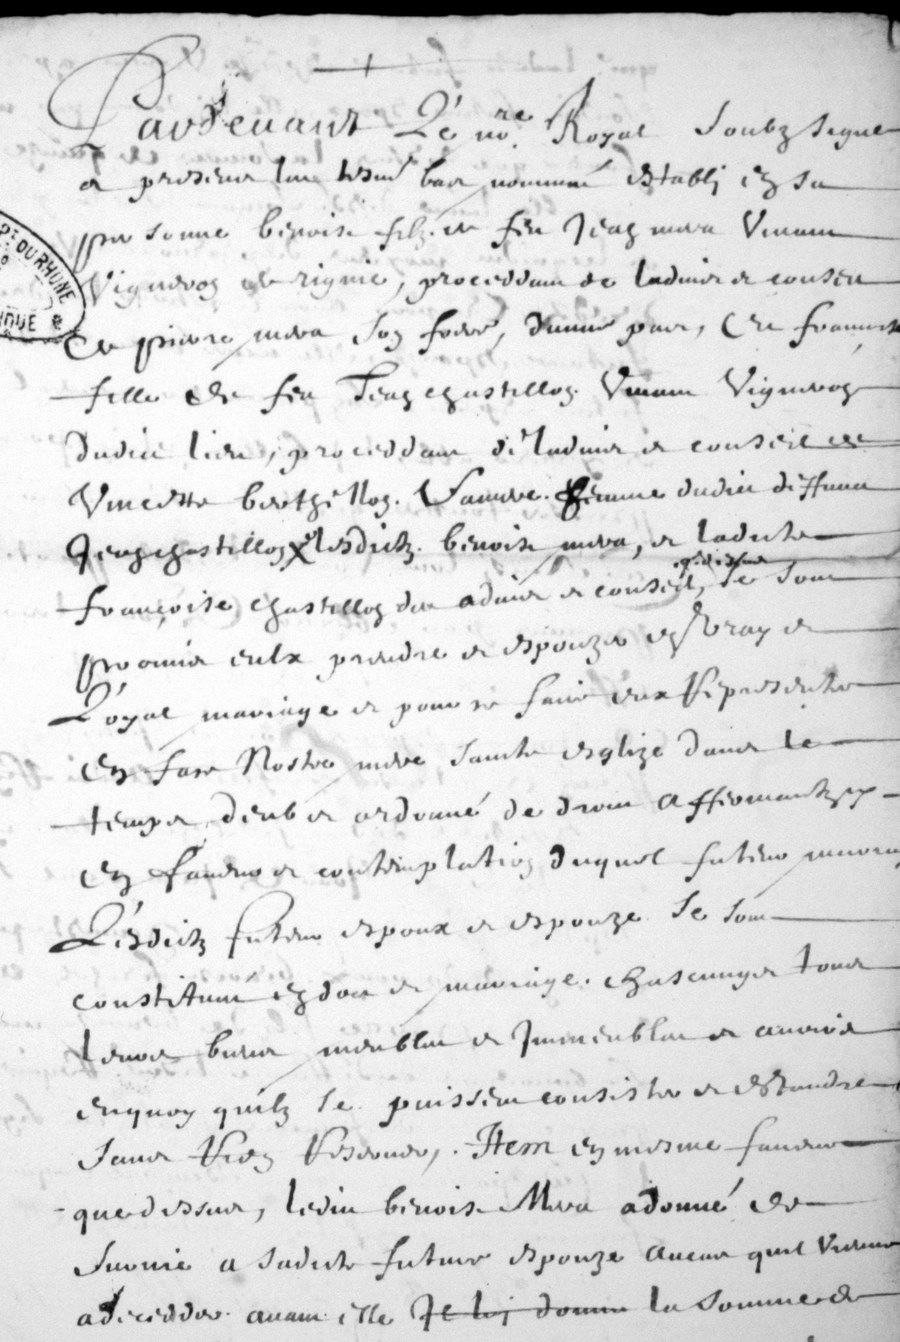 Pardevant Le no.re Royal Soubz signe
et presens les tesm. bas nommes establi en sa
personne benoist filz de feu Jean mera Vivant
Vigneron de rignie, proceddant de ladvis et conseil
de pierre mera son frere, d'une part, Et francoise
fille de feu Jean chastillon Vivant Vigneron
dudit lieu, proceddant de ladvis et conseil de
Vincette berthillon. Vefve. femme dudit deffunt
Jean chastillon Lesdictz benoist mera, et ladicte
françoise chastillon de advis et conseil, q. dessus Se sont
promis eulx prendre et espouzer en Vray et
Loyal mariage et pour ce faire eux Representer
en face Nostre mere saincte esglize dans le
temps deub et ordonné de droit Affirmantz
en faveur et contemplation duquel futeur mariage
Lesdictz futeur espoux et espouze Se sont
constitues en dot et mariage. chascungs tous
leurs biens meubles et Immeubles et avoirs
enquoy quilz Se puissent consister et estandre
sans Rien Reserver, . Item en mesme faveur
que dessus, ledit benoist Mera adonné de
survie a sadicte future espouze Aucas quil vienne
adecedder avant elle la somme de